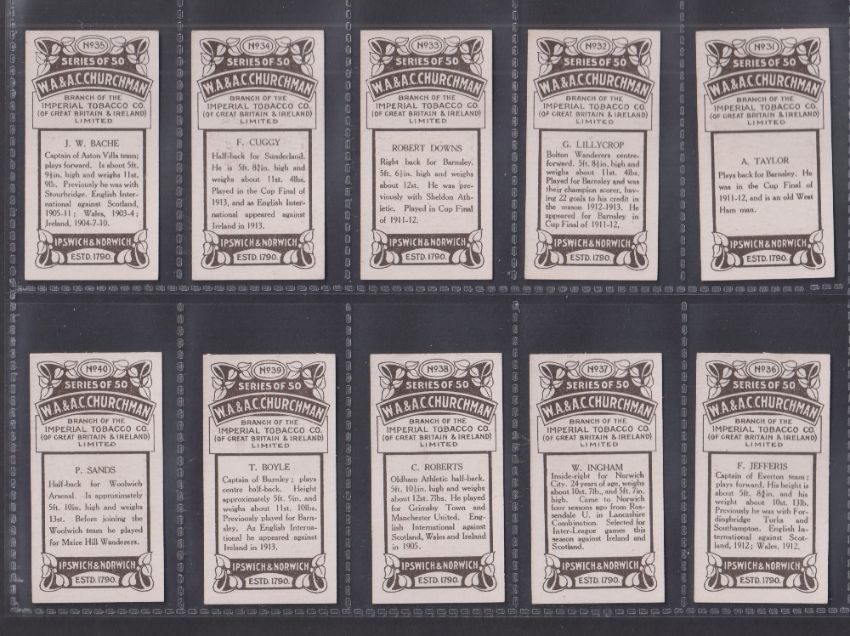 No35
SERIES OF 50
W.A. & A.C. CHURCHMAN
BRANCH OF THE
IMPERIAL TOBACCO CO.
(OF GREAT BRITAIN & IRELAND)
LIMITED
J. W. BACHE
Captain of Aston Villa team;
plays forward. Is about 5ft.
high and weighs 11st.
9lb. Previously he was with
Stourbridge. English Inter-
national against Scotland,
1905-11; Wales, 1903-4;
Ireland, 1904-7-10.
IPSWICH & NORWICH
ESTD. 1790.
No34
SERIES OF 50
W.A. & A.C. CHURCHMAN
BRANCH OF THE
IMPERIAL TOBACCO CO.
(OF GREAT BRITAIN & IRELAND)
LIMITED
F. CUGGY
Half-back for Sunderland.
He is 5ft. 8¾in. high and
weighs about 11st. 4lbs.
Played in the Cup Final of
1913, and as English Inter-
national appeared against
Ireland in 1913.
IPSWICH & NORWICH
ESTD. 1790.
No33
SERIES OF 50
W.A. & A.C. CHURCHMAN
BRANCH OF THE
IMPERIAL TOBACCO CO.
(OF GREAT BRITAIN & IRELAND)
LIMITED
ROBERT DOWNS
Right back for Barnsley.
5ft. 6½in. high and weighs
about 12st. He was pre-
viously with Sheldon Ath-
letic. Played in Cup Final
of 1911-12.
IPSWICH & NORWICH
ESTD. 1790.
No32
SERIES OF 50
W.A. & A.C. CHURCHMAN
BRANCH OF THE
IMPERIAL TOBACCO CO.
(OF GREAT BRITAIN & IRELAND)
LIMITED
G. LILLYCROP
Bolton Wanderers centre-
forward. 5ft. 8½in. high and
weighs about 11st. 4lbs.
Played for Barnsley and was
their champion scorer, hav-
ing 22 goals to his credit in
the season 1912-1913. He
appeared for Barnsley in
Cup Final of 1911-12.
IPSWICH & NORWICH
ESTD. 1790.
No31
SERIES OF 50
W.A. & A.C. CHURCHMAN
BRANCH OF THE
IMPERIAL TOBACCO CO.
(OF GREAT BRITAIN & IRELAND)
LIMITED
A. TAYLOR
Plays back for Barnsley. He
was in the Cup Final of
1911-12, and is an old West
Ham man.
IPSWICH & NORWICH
ESTD. 1790.
No40
SERIES OF 50
W.A. & A.C. CHURCHMAN
BRANCH OF THE
IMPERIAL TOBACCO CO.
(OF GREAT BRITAIN & IRELAND)
LIMITED
P. SANDS
Half-back for Woolwich
Arsenal. Is approximately
5ft. 10in. high and weighs
13st. Before joining the
Woolwich team he played
for Maize Hill Wanderers.
IPSWICH & NORWICH
ESTD. 1790.
No39
SERIES OF 50
W.A. & A.C. CHURCHMAN
BRANCH OF THE
IMPERIAL TOBACCO CO.
(OF GREAT BRITAIN & IRELAND)
LIMITED
T. BOYLE
Captain of Burnley; plays
centre half-back. Height
approximately 5ft. 9in. and
weighs about 11st. 10lbs.
Previously played for Barn-
sley. As English Interna-
tional he appeared against
Ireland in 1913.
IPSWICH & NORWICH
ESTD. 1790.
No38
SERIES OF 50
W.A. & A.C. CHURCHMAN
BRANCH OF THE
IMPERIAL TOBACCO CO.
(OF GREAT BRITAIN & IRELAND)
LIMITED
C. ROBERTS
Oldham Athletic half-back.
5ft. 10½in. high and weighs
about 12st. 7lbs. He played
for Grimsby Town and
Manchester United. Eng-
lish International against
Scotland, Wales and Ireland
in 1905.
IPSWICH & NORWICH
ESTD. 1790.
No37
SERIES OF 50
W.A. & A.C. CHURCHMAN
BRANCH OF THE
IMPERIAL TOBACCO CO.
(OF GREAT BRITAIN & IRELAND)
LIMITED
W. INGHAM
Inside-right for Norwich
City. 24 years of age, weighs
about 10st. 7lb., and 5ft. 7in.
high. Came to Norwich
four seasons ago from Ros-
sendale U. in Lancashire
Combination. Selected for
Inter-League games this
season against Ireland and
Scotland.
IPSWICH & NORWICH
ESTD. 1790.
No36
SERIES OF 50
W.A. & A.C. CHURCHMAN
BRANCH OF THE
IMPERIAL TOBACCO CO.
(OF GREAT BRITAIN & IRELAND)
LIMITED
F. JEFFERIS
Captain of Everton team;
plays forward. His height is
about 5ft. 8¾in. and his
weight about 10st. 13lb.
Previously he was with For-
dingbridge Turks and
Southampton. English In-
ternational against Scot-
land, 1912; Wales, 1912.
IPSWICH & NORWICH
ESTD. 1790.